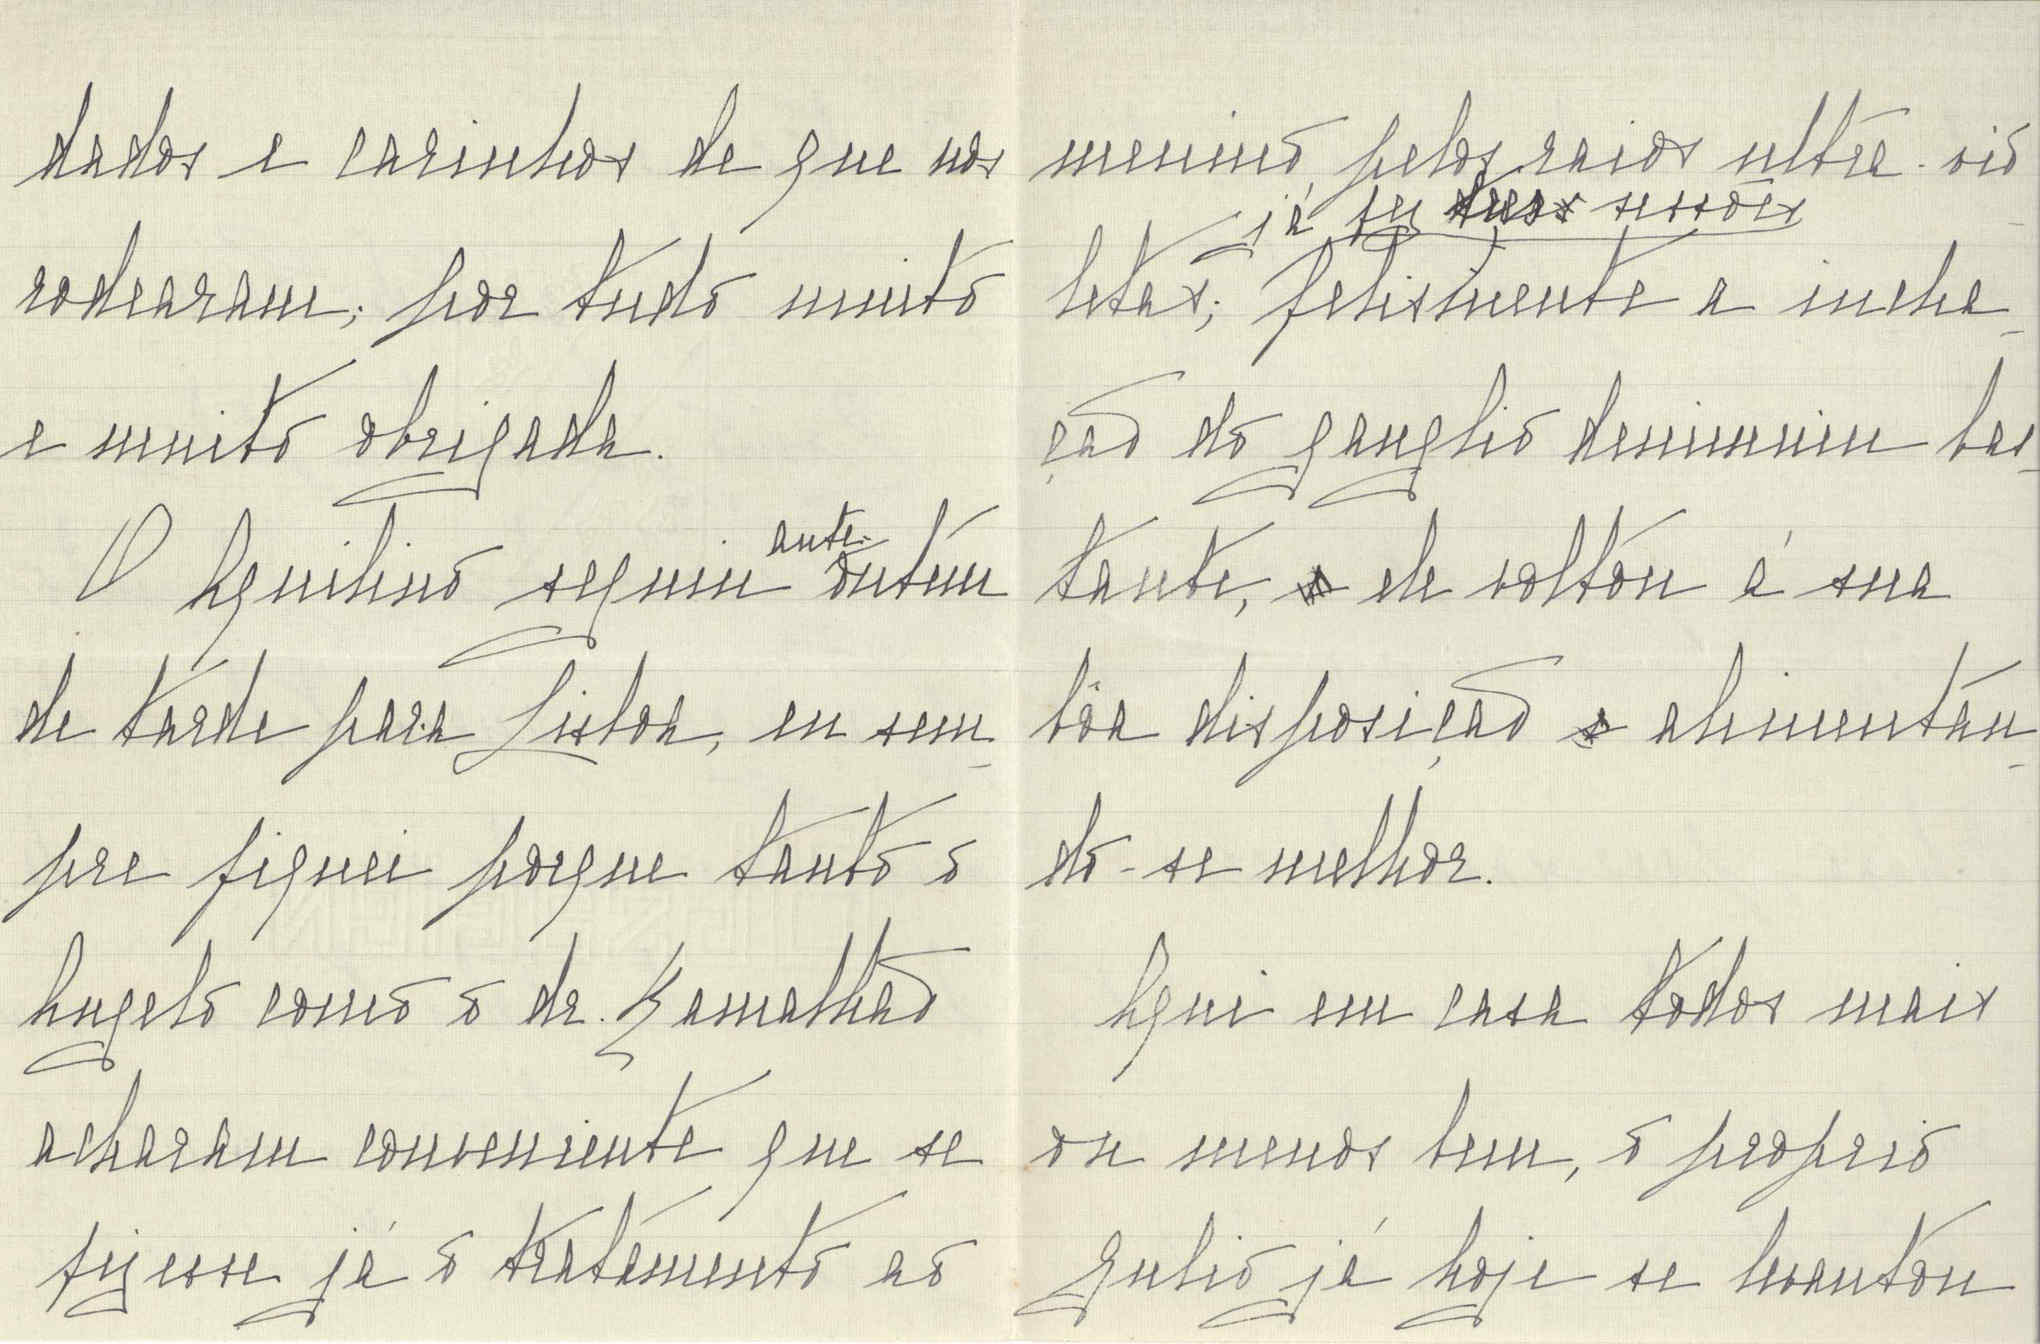 dados e carinhos de que nos
rodearam; por tudo muito
e muito obrigada.
O Aquilino seguiu ante-
ontem
de tarde para Lisboa, eu sem-
pre fiquei porque tanto o
Angelo como o dr. Ramalhão
acharam conveniente que se
fizesse já o tratamento ao
menino pelos raios ultra-vio-
já fez duas sessões
letas; felismente a incha-
ção do ganglio deminuiu bas-
tante, e ele voltou á sua
bôa disposição e alimentan-
do-se melhor.
Aqui em casa todos mais
ou menos bem, o proprio
Julio já hoje se levantou